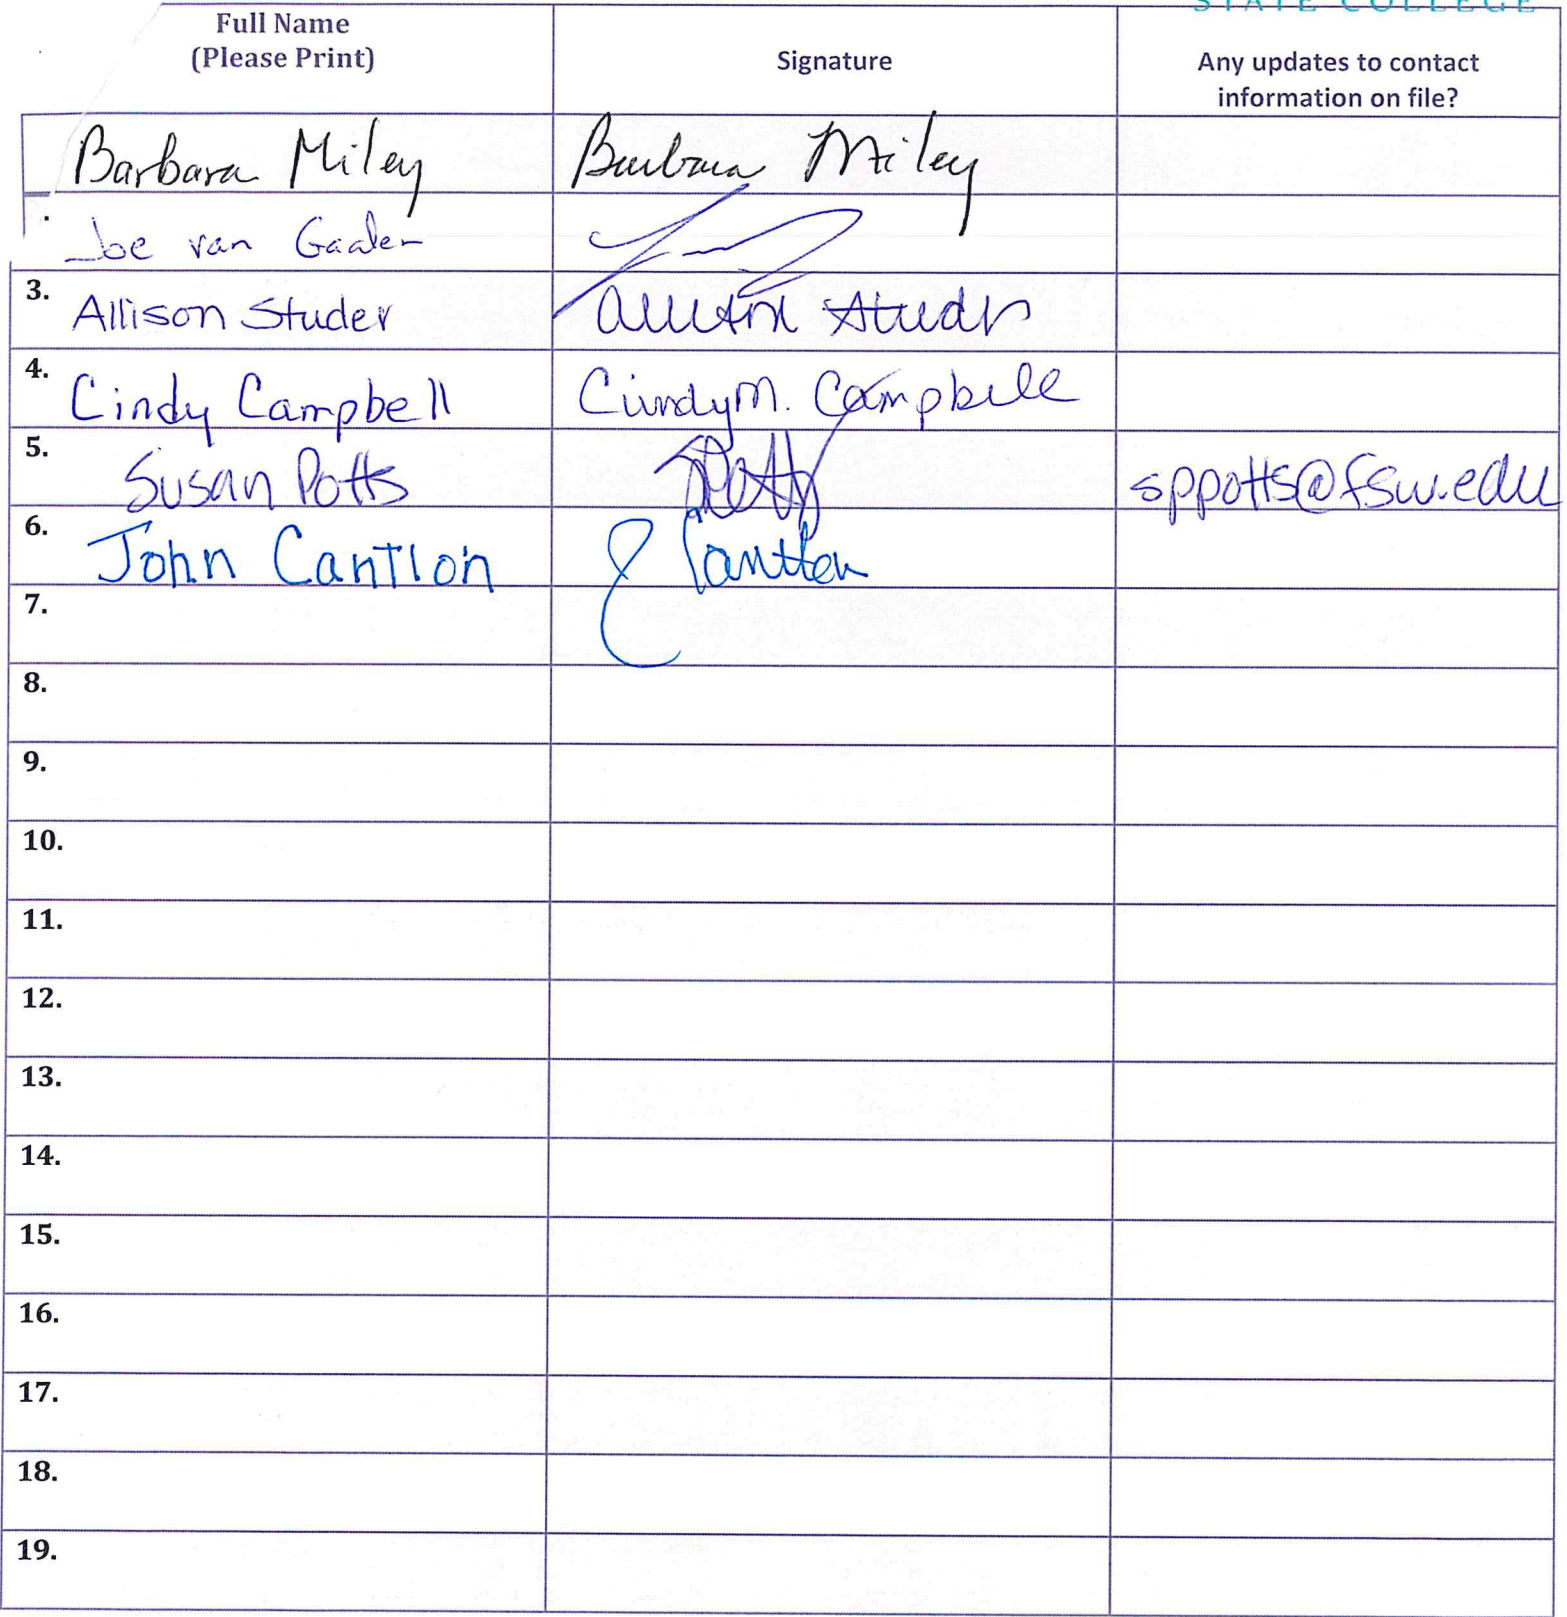 STATE COLLEGE
Full Name
(Please Print)
Signature
Any updates to contact
information on file?
Barbara Miley Barbara Miley
Joe van Gaalen
3. Allison Studer Allison Studer
4. Cindy Campbell Cindy M. Campbell
5. Susan Potts SPotts sppotts@fsw.edu
6. John Cantlon J Cantlon
7.
8.
9.
10.
11.
12.
13.
14.
15.
16.
17.
18.
19.